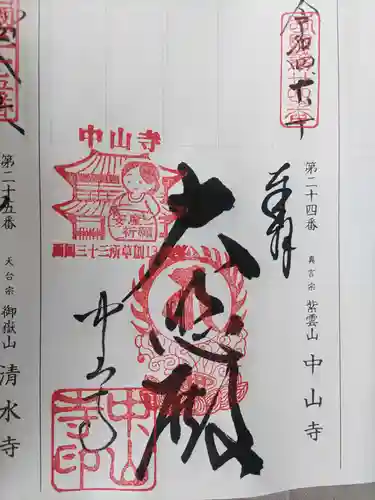 令和四
奉拝
第二十四番
真言宗
紫雲山
中山寺
大悲殿
中山寺
中山寺
安産
祈願
西国三十三所草創13
中山
寺印
第二十五番
天台宗
御嶽山
清水寺